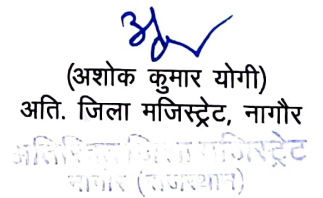 (अशोक कुमार योगी)
अति. जिला मजिस्ट्रेट, नागौर
अतिरिक्त जिला मजिस्ट्रेट
नागौर (राजस्थान)